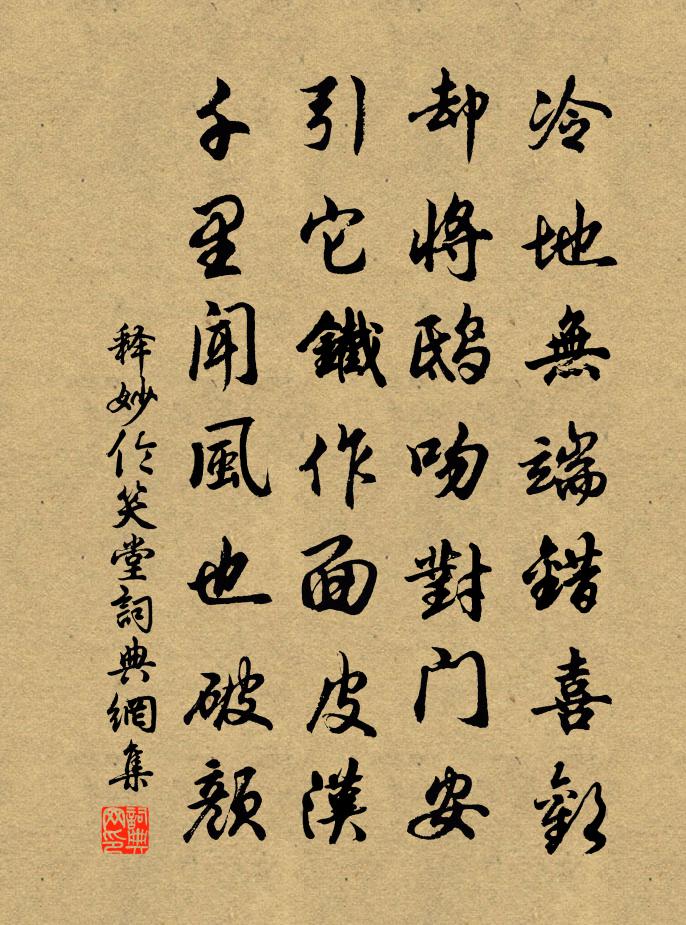 冷地無端錯喜歡
却將鴟吻對门安
引它鐵作面皮漢
千里聞風也破顔
释妙伦笑堂詞典網集
詞典网印